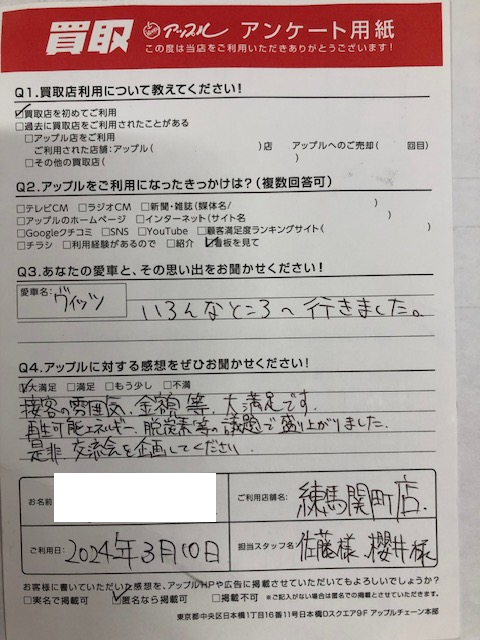 買取 アップル アンケート用紙
この度は当店をご利用いただきありがとうございます!
Q1.買取店利用について教えてください!
☑買取店を初めてご利用
□過去に買取店をご利用されたことがある
□アップル店をご利用
ご利用された店舗:アップル( )店 アップルへのご売却( 回目)
□その他の買取店( )
Q2.アップルをご利用になったきっかけは?(複数回答可)
□テレビCM □ラジオCM □新聞・雑誌(媒体名/ )
□アップルのホームページ □インターネット(サイト名 )
□Googleクチコミ □SNS □YouTube □顧客満足度ランキングサイト( )
□チラシ □利用経験があるので □紹介 ☑看板を見て
Q3.あなたの愛車と、その思い出をお聞かせください!
愛車名: ヴィッツ
いろんなところへ行きました。
Q4.アップルに対する感想をぜひお聞かせください!
☑大満足 □満足 □もう少し □不満
接客の雰囲気、金額等、大満足です.
再生可能エネルギー、脱炭素等の議題で盛り上がりました.
是非、交流会を企画してください.
お名前 ご利用店舗名: 練馬関町店.
ご利用日: 2024年3月10日 担当スタッフ名 佐藤様、櫻井様
お客様に書いていただいた感想を、アップルHPや広告に掲載させていただいてもよろしいでしょうか?
□実名で掲載可 ☑匿名なら掲載可 □掲載不可 ※ご記入がない場合は匿名での掲載とさせていただきます。
東京都中央区日本橋1丁目16番11号日本橋Dスクエア9F アップルチェーン本部